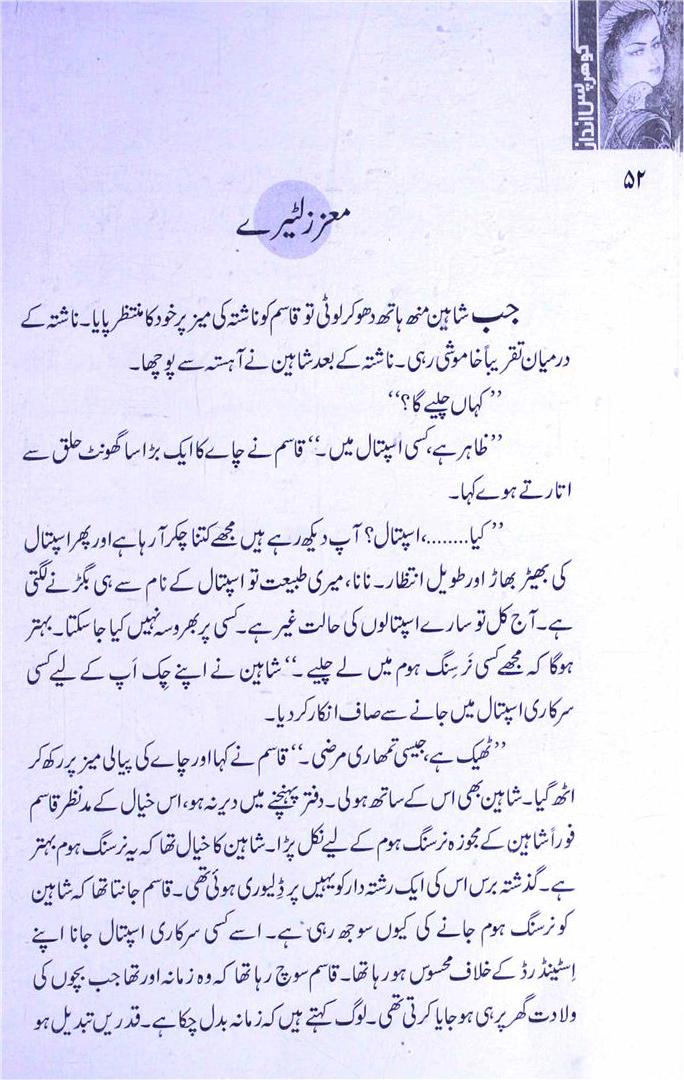 گوہر پس انداز
۵۲
معزز لٹیرے
جب شاہین منھ ہاتھ دھو کر لوٹی تو قاسم کو ناشتہ کی میز پر خود کا منتظر پایا۔ ناشتہ کے
درمیان تقریباً خاموشی رہی۔ ناشتہ کے بعد شاہین نے آہستہ سے پوچھا۔
’’کہاں چلیے گا؟‘‘
’’ظاہر ہے، کسی اسپتال میں۔‘‘ قاسم نے چاے کا ایک بڑا سا گھونٹ حلق سے
اتارتے ہوے کہا۔
’’کیا........، اسپتال؟ آپ دیکھ رہے ہیں مجھے کتنا چکر آ رہا ہے اور پھر اسپتال
کی بھیڑ بھاڑ اور طویل انتظار۔ نا نا، میری طبیعت تو اسپتال کے نام سے ہی بگڑنے لگتی
ہے۔ آج کل تو سارے اسپتالوں کی حالت غیر ہے۔ کسی پر بھروسہ نہیں کیا جا سکتا۔ بہتر
ہوگا کہ مجھے کسی نَرسِنگ ہوم میں لے چلیے۔‘‘ شاہین نے اپنے چِک اَپ کے لیے کسی
سرکاری اسپتال میں جانے سے صاف انکار کر دیا۔
’’ٹھیک ہے، جیسی تمھاری مرضی۔‘‘ قاسم نے کہا اور چاے کی پیالی میز پر رکھ کر
اٹھ گیا۔ شاہین بھی اس کے ساتھ ہولی۔ دفتر پہنچنے میں دیر نہ ہو، اس خیال کے مدنظر قاسم
فوراً شاہین کے مجوزہ نرسنگ ہوم کے لیے نکل پڑا۔ شاہین کا خیال تھا کہ یہ نرسنگ ہوم بہتر
ہے۔ گذشتہ برس اس کی ایک رشتہ دار کو یہیں پر ڈِلیوری ہوئی تھی۔ قاسم جانتا تھا کہ شاہین
کو نرسنگ ہوم جانے کی کیوں سوجھ رہی ہے۔ اسے کسی سرکاری اسپتال جانا اپنے
اِسٹینڈرڈ کے خلاف محسوس ہو رہا تھا۔ قاسم سوچ رہا تھا کہ وہ زمانہ اور تھا جب بچوں کی
ولادت گھر پر ہی ہو جایا کرتی تھی۔ لوگ کہتے ہیں کہ زمانہ بدل چکا ہے۔ قدریں تبدیل ہو